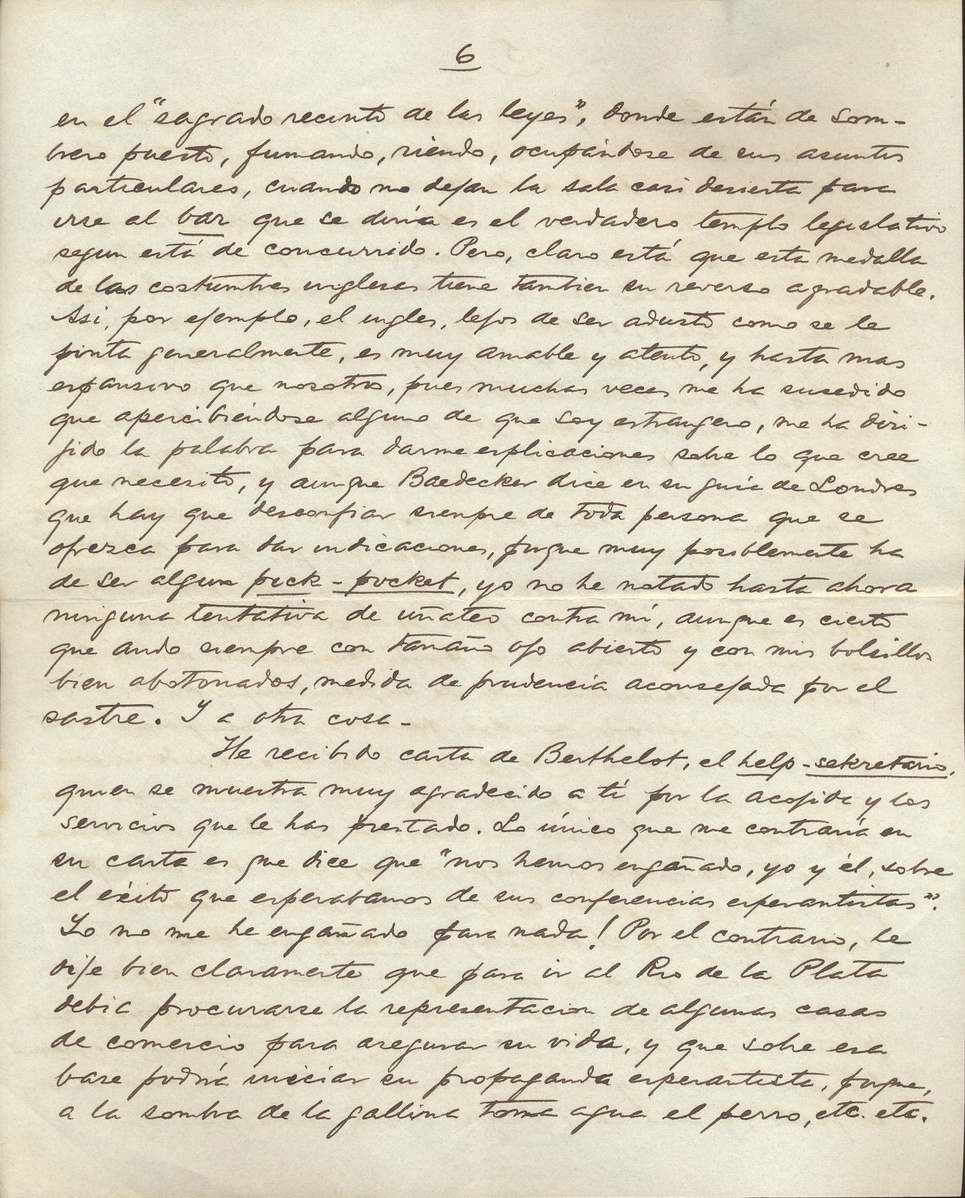 6
en el "sagrado recinto de las leyes", donde están de som-
brero puesto, fumando, riendo, ocupándose de sus asuntos
particulares, cuando no dejan la sala casi desierta para
irse al bar que se diría es el verdadero templo legislativo
segun está de concurrido. Pero, claro está que esta medalla
de las costumbres inglesas tiene tambien su reverso agradable.
Asi, por ejemplo, el ingles, lejos de ser adusto como se le
pinta generalmente, es muy amable y atento, y hasta mas
espansivo que nosotros, pues muchas veces me ha susedido
que apercibiéndose alguno de que soy estrangero, me ha diri-
jido la palabra para darme esplicaciones sobre lo que cree
que necesito, y aunque Baedecker dice en su guia de Londres
que hay que desconfiar siempre de toda persona que se
ofrezca para dar indicaciones, porque muy posiblemente ha
de ser algun pick-pocket, yo no he notado hasta ahora
ninguna tentativa de uñateo contra mí, aunque es cierto
que ando siempre con tamaño ojo abierto y con mis bolsillos
bien abotonados, medida de prudencia aconsejada por el
sastre. Y a otra cosa-
He recibido carta de Berthelot, el help-sekretario,
quien se muestra muy agradecido a tí por la acojida y los
servicios que le has prestado. Lo único que me contraría en
su carta es que dice que "nos hemos engañado, yo y él, sobre
el éxito que esperabamos de sus conferencias esperantistas".
Yo no me he engañado para nada! Por el contrario, le
dije bien claramente que para ir al Rio de la Plata
debia procurarse la representacion de algunas casas
de comercio para asegurar su vida, y que sobre esa
base podría iniciar su propaganda esperantista, porque,
a la sombra de la gallina toma agua el perro, etc. etc.